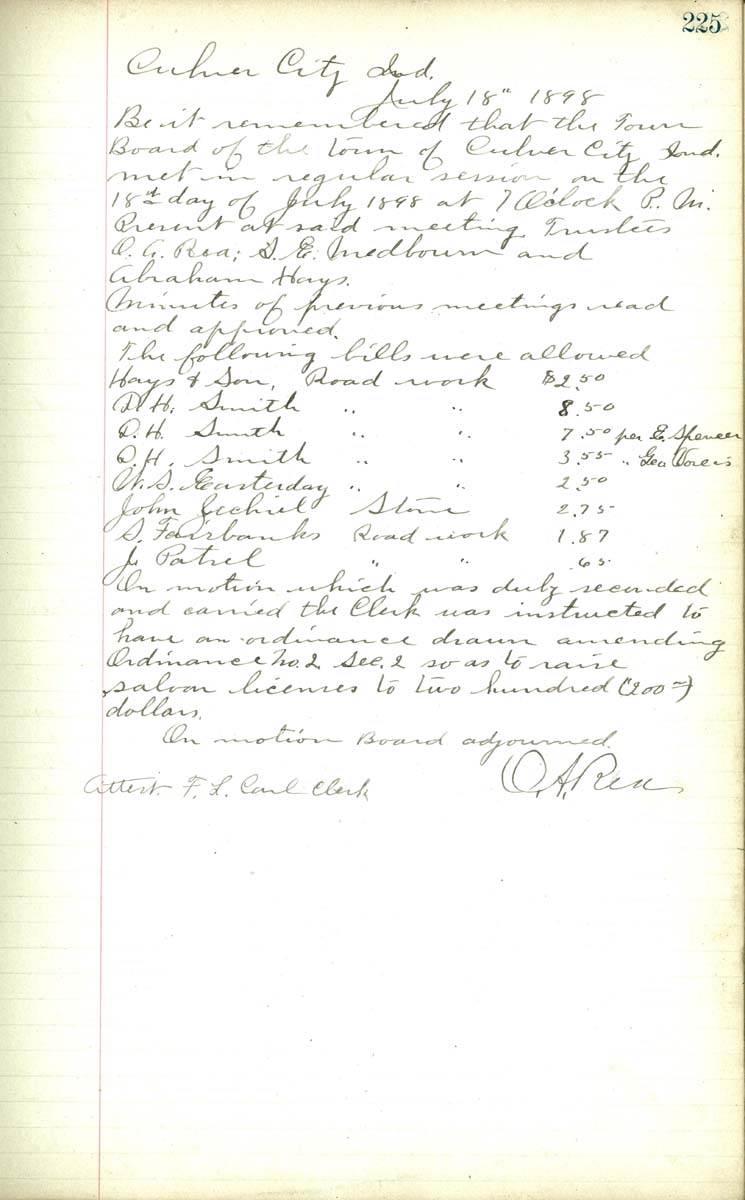 225
Culver City Ind.
July 18" 1898
Be it remembered that the Town
Board of the town of Culver City Ind.
met in regular session on the
18th day of July 1898 at 7 O'clock P. M.
Present at said meeting Trustees
O. A. Rea; S. E. Medbourn and
Abraham Hays.
Minutes of previous meetings read
and approved.
The following bills were allowed
Hays & Son, Road work $2.50
D. H. Smith " " 8.50
D. H. Smith " " 7.50 per E. Spencer
D. H. Smith " " 3.55 " Geo
W. S. Easterday " " 2.50
John Zechiel Stone 2.75
S. Fairbanks Road work 1.87
J. " " .65
On motion which was duly seconded
and carried the Clerk was instructed to
have an ordinance drawn amending
Ordinance No. 2 Sec. 2 so as to raise
saloon licenses to two hundred (200 00)
dollars.
On motion Board adjourned.
O. A. Rea
Attest. F. L. Carl Clerk